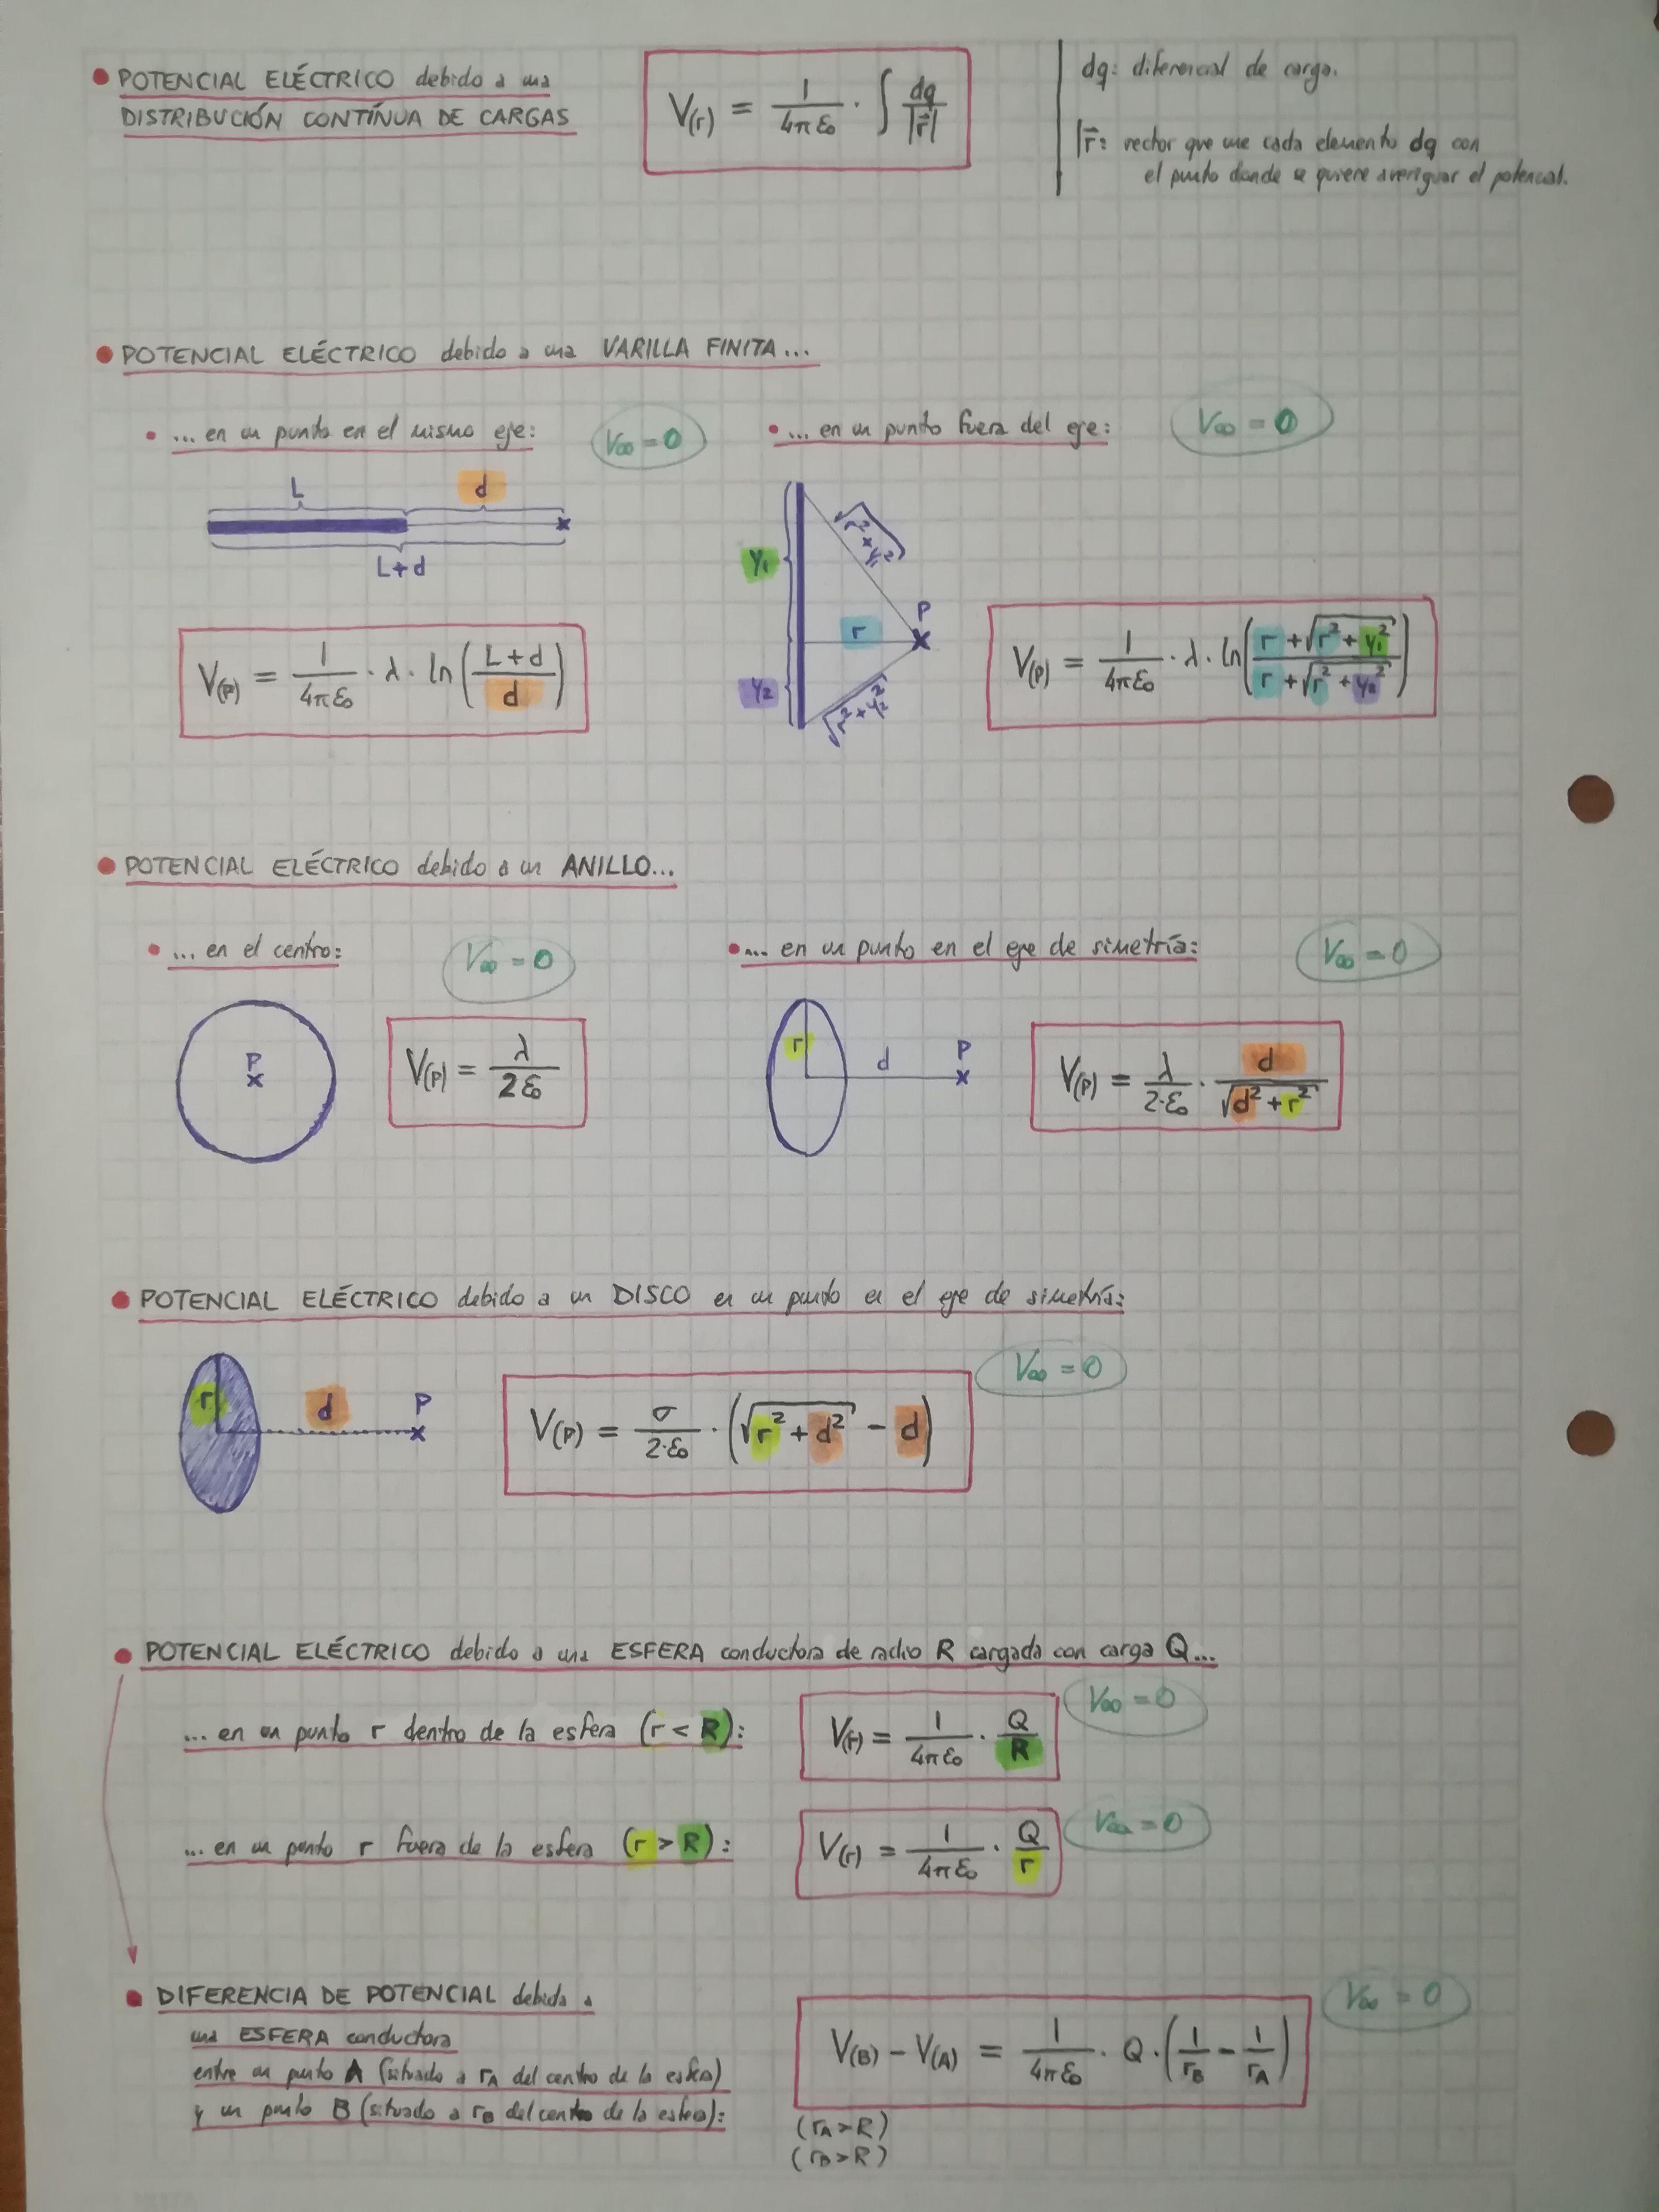 • POTENCIAL ELÉCTRICO debido a una
DISTRIBUCIÓN CONTÍNUA DE CARGAS
V(r) = 1/4πε₀ · ∫ dq/|r⃗|
dq: diferencial de carga.
|r⃗: vector que une cada elemento dq con
el punto donde se quiere averiguar el potencial.
• POTENCIAL ELÉCTRICO debido a una VARILLA FINITA...
• ... en un punto en el mismo eje:
V∞ = 0
L
d
L+d
V(P) = 1/4πε₀ · λ · ln((L+d)/d)
• ... en un punto fuera del eje:
V∞ = 0
y₁
√r²+y₁²
P
r
y₂
√r²+y₂²
V(P) = 1/4πε₀ · λ · ln((r+√r²+y₁²)/(r+√r²+y₂²))
• POTENCIAL ELÉCTRICO debido a un ANILLO...
• ... en el centro:
V∞ = 0
P
V(P) = λ/2ε₀
• ... en un punto en el eje de simetría:
V∞ = 0
r
d
P
V(P) = λ/2·ε₀ · d/√d²+r²
• POTENCIAL ELÉCTRICO debido a un DISCO en un punto en el eje de simetría:
r
d
P
V(P) = σ/2·ε₀ · (√r²+d² - d)
V∞ = 0
• POTENCIAL ELÉCTRICO debido a una ESFERA conductora de radio R cargada con carga Q...
... en un punto r dentro de la esfera (r < R):
V(r) = 1/4πε₀ · Q/R
V∞ = 0
... en un punto r fuera de la esfera (r > R):
V(r) = 1/4πε₀ · Q/r
V∞ = 0
• DIFERENCIA DE POTENCIAL debida a
una ESFERA conductora
entre un punto A (situado a rA del centro de la esfera)
y un punto B (situado a rB del centro de la esfera):
V(B) - V(A) = 1/4πε₀ · Q · (1/rB - 1/rA)
V∞ = 0
(rA > R)
(rB > R)